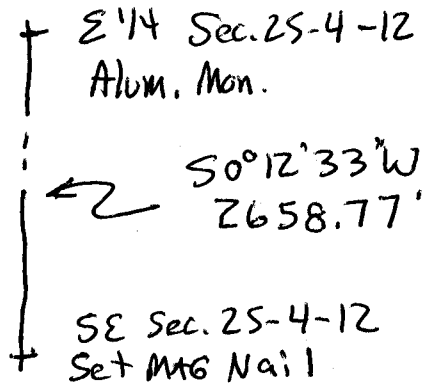 E 1/4 Sec. 25-4-12
Alum. Mon.
S0°12'33"W
2658.77'
SE Sec. 25-4-12
Set MAG Nail